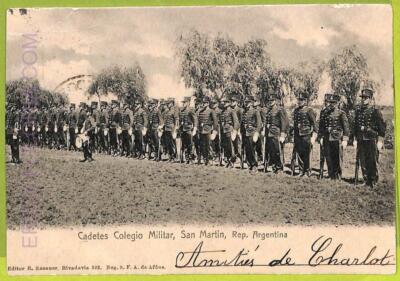 Cadetes Colegio Militar, San Martin, Rep. Argentina
Amitiés de Charlot
Editor R. Rosauer, Rivadavia 522. Reg. S. F. A. de Affros.